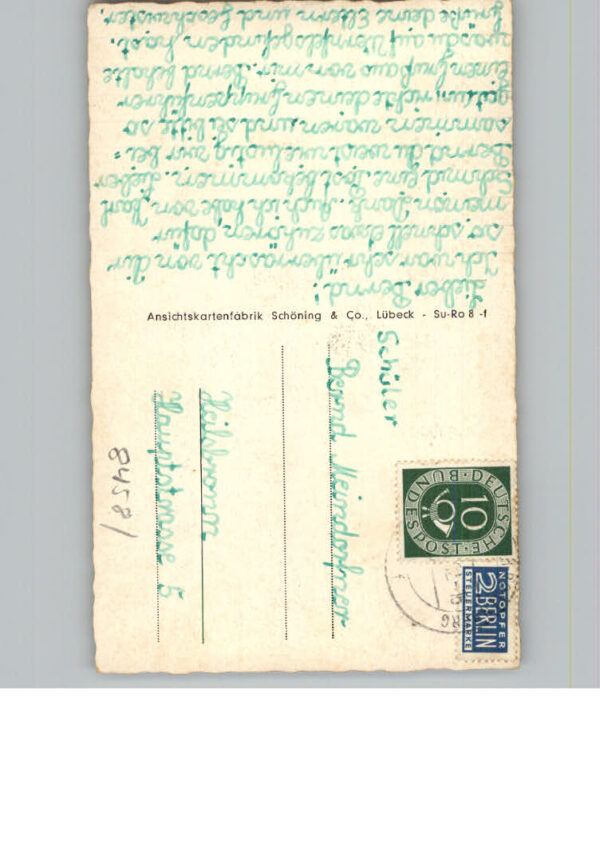 Lieber Bernd!
Ich war sehr überrascht von dir
so schnell etwas zu hören dafür
meinen Dank. Auch ich habe von Karl
Schmid eine Post bekommen. Lieber
Bernd du weist wie lustig wir bei-
sammen waren und sei bitte so
gut und richte deinem Gruppenführer
einen Gruß aus von mir. Bernd behalte
was du auf Wernfels gefunden hast.
Grüße deine Eltern und Geschwister.
Ansichtskartenfabrik Schöning & Co., Lübeck - Su-Ro 8 -f
Schüler
Bernd Meindorfner
Heilsbronn
Hauptstrasse 5
8458/
DEUTSCHE BUNDESPOST
10
NOTOPFER
2 BERLIN
STEUERMARKE